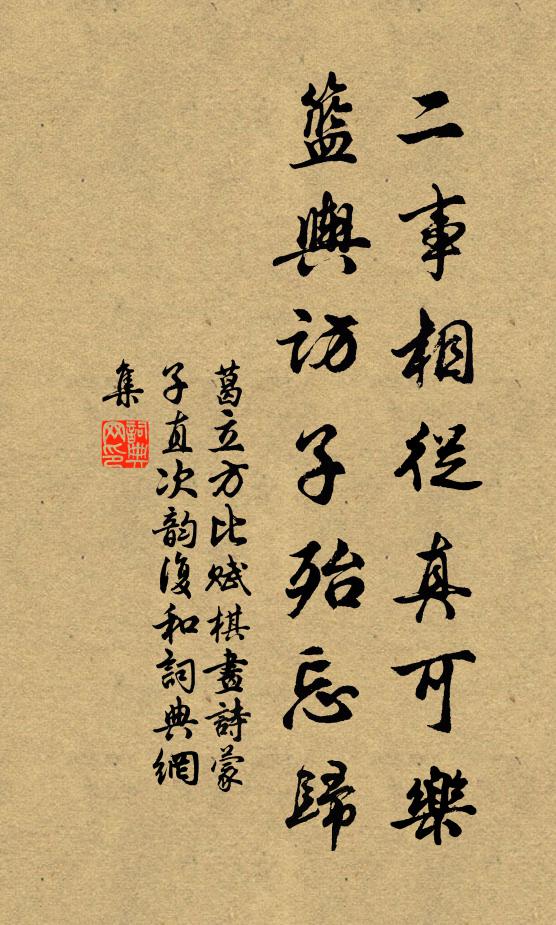 二事相從真可樂
籃輿訪子殆忘歸
葛立方比賦棋畫詩蒙
子直次韵復和詞典網
集
詞典網印